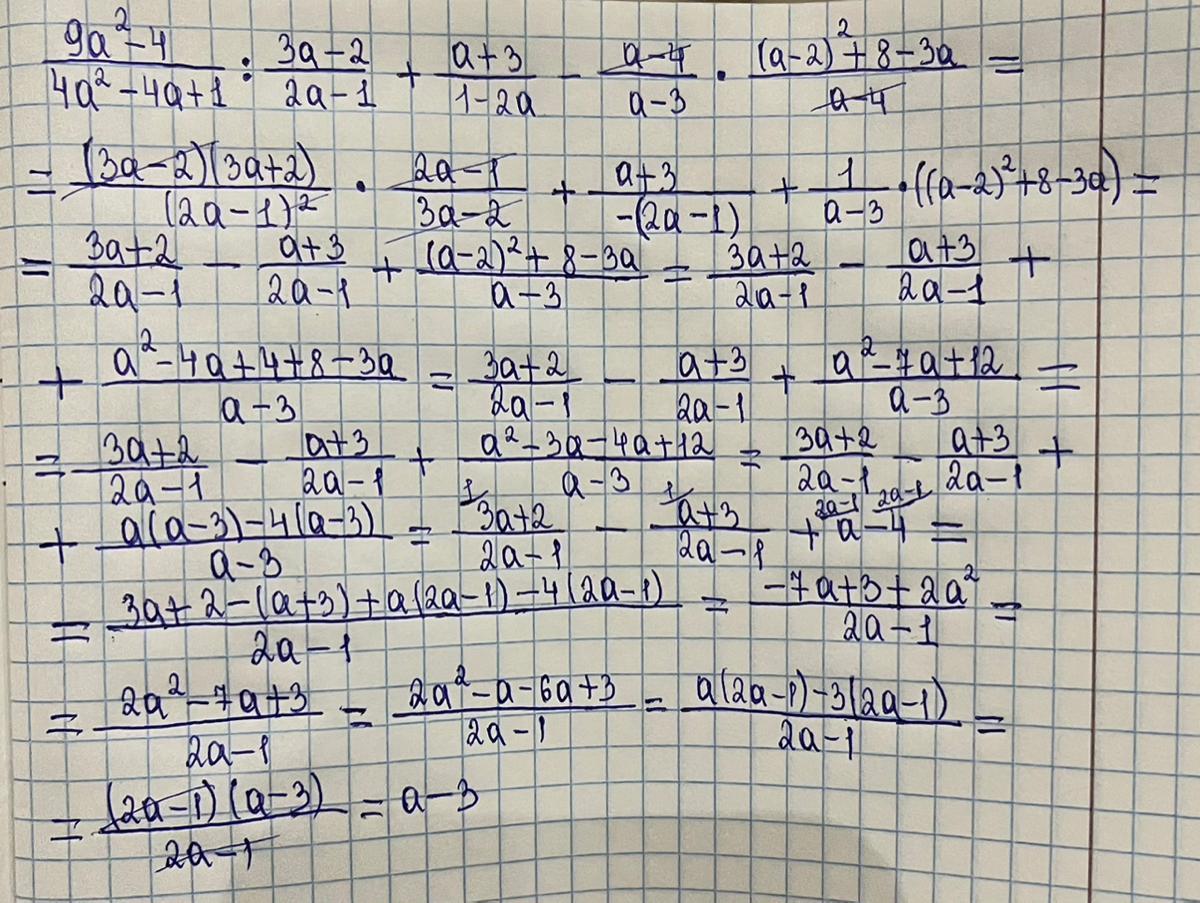 (9a² - 4)/(4a² - 4a + 1) : (3a - 2)/(2a - 1) + (a + 3)/(1 - 2a) - (a - 4)/(a - 3) · ((a - 2)² + 8 - 3a)/(a - 4) =
= ((3a - 2)(3a + 2))/(2a - 1)² · (2a - 1)/(3a - 2) + (a + 3)/(-(2a - 1)) + 1/(a - 3) · ((a - 2)² + 8 - 3a) =
= (3a + 2)/(2a - 1) - (a + 3)/(2a - 1) + ((a - 2)² + 8 - 3a)/(a - 3) = (3a + 2)/(2a - 1) - (a + 3)/(2a - 1) +
+ (a² - 4a + 4 + 8 - 3a)/(a - 3) = (3a + 2)/(2a - 1) - (a + 3)/(2a - 1) + (a² - 7a + 12)/(a - 3) =
= (3a + 2)/(2a - 1) - (a + 3)/(2a - 1) + (a² - 3a - 4a + 12)/(a - 3) = (3a + 2)/(2a - 1) - (a + 3)/(2a - 1) +
+ (a(a - 3) - 4(a - 3))/(a - 3) = ¹⁄(3a + 2)/(2a - 1) - ¹⁄(a + 3)/(2a - 1) + ²ᵃ⁻¹⁄a - ²ᵃ⁻¹⁄4 =
= (3a + 2 - (a + 3) + a(2a - 1) - 4(2a - 1))/(2a - 1) = (-7a + 3 + 2a²)/(2a - 1) =
= (2a² - 7a + 3)/(2a - 1) = (2a² - a - 6a + 3)/(2a - 1) = (a(2a - 1) - 3(2a - 1))/(2a - 1) =
= ((2a - 1)(a - 3))/(2a - 1) = a - 3